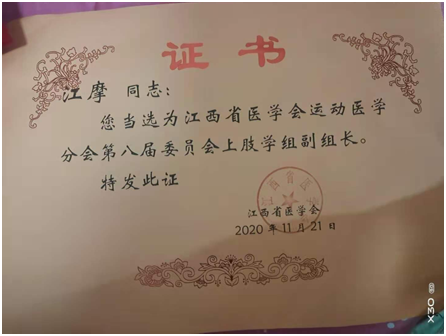 证书
江摩 同志:
您当选为江西省医学会运动医学
分会第八届委员会上肢学组副组长。
特发此证
江西省医学会
2020 年 11 月 21 日